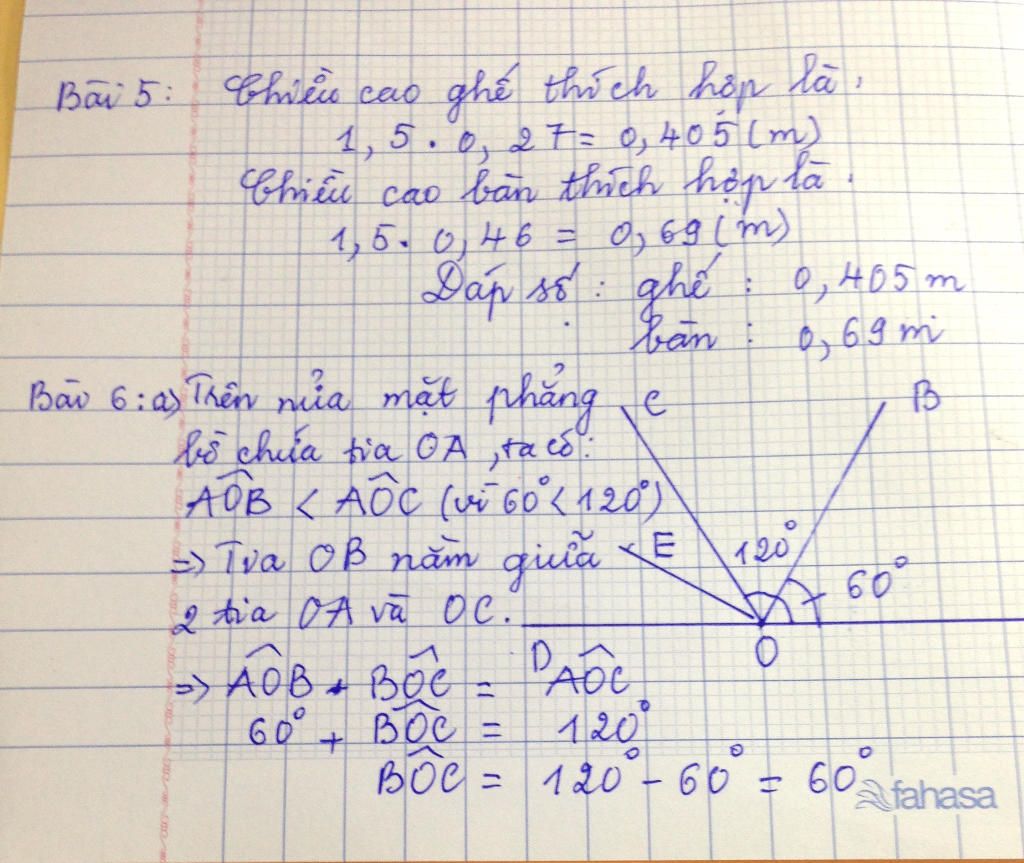 Bài 5: Chiều cao ghế thích hợp là:
1,5 . 0,27 = 0,405 (m)
Chiều cao bàn thích hợp là.
1,5. 0,46 = 0,69 (m)
Đáp số: ghế : 0,405 m
bàn : 0,69 m
Bài 6: a) Trên nửa mặt phẳng
bờ chứa tia OA, ta có:
AÔB < AÔC (vì 60° < 120°)
=> Tia OB nằm giữa
2 tia OA và OC.
=> AÔB + BÔC = AÔC
60° + BÔC = 120°
BÔC = 120° - 60° = 60°
C
B
E
120°
60°
D
O
fahasa